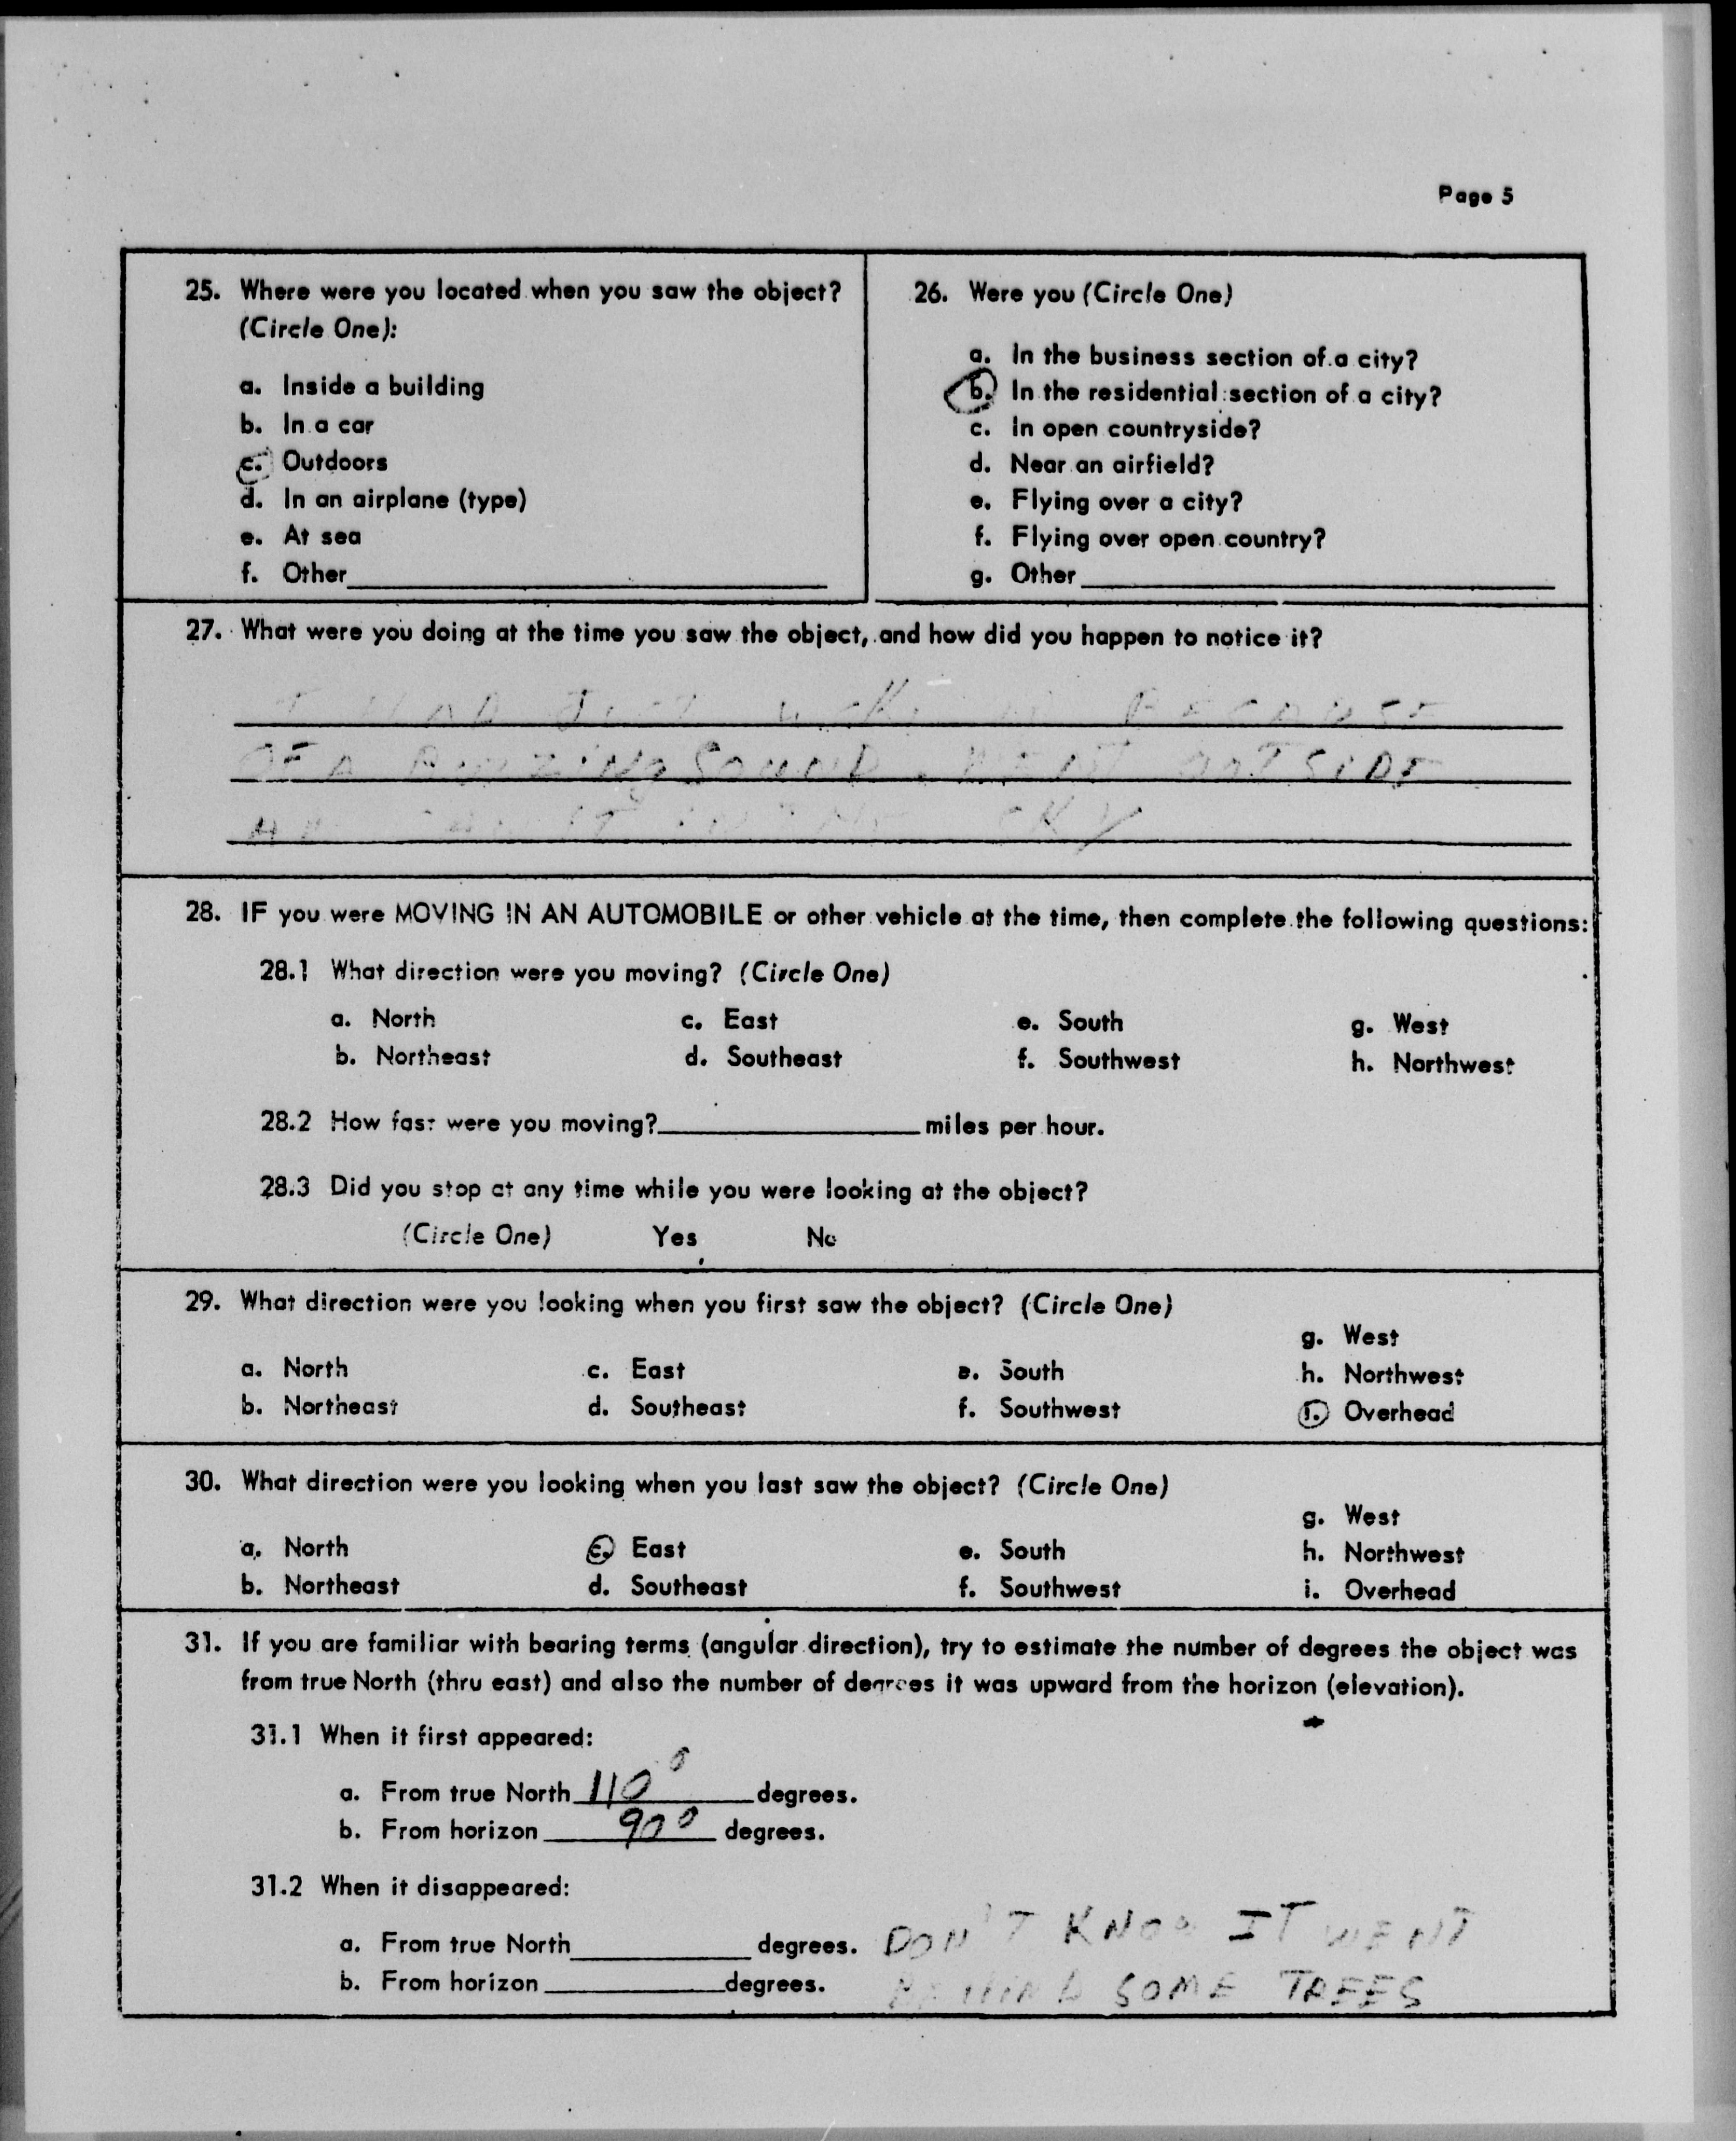 Page 5
25. Where were you located when you saw the object?
(Circle One):
a. Inside a building
b. In a car
c. Outdoors
d. In an airplane (type)
e. At sea
f. Other
26. Were you (Circle One)
a. In the business section of a city?
b. In the residential section of a city?
c. In open countryside?
d. Near an airfield?
e. Flying over a city?
f. Flying over open country?
g. Other
27. What were you doing at the time you saw the object, and how did you happen to notice it?
I HAD JUST BECAUSE
OF A BUZZING SOUND. WENT OUTSIDE
IT IN THE SKY
28. IF you were MOVING IN AN AUTOMOBILE or other vehicle at the time, then complete the following questions:
28.1 What direction were you moving? (Circle One)
a. North c. East e. South g. West
b. Northeast d. Southeast f. Southwest h. Northwest
28.2 How fast were you moving? miles per hour.
28.3 Did you stop at any time while you were looking at the object?
(Circle One) Yes No
29. What direction were you looking when you first saw the object? (Circle One)
g. West
a. North c. East e. South h. Northwest
b. Northeast d. Southeast f. Southwest i. Overhead
30. What direction were you looking when you last saw the object? (Circle One)
g. West
a. North c. East e. South h. Northwest
b. Northeast d. Southeast f. Southwest i. Overhead
31. If you are familiar with bearing terms (angular direction), try to estimate the number of degrees the object was
from true North (thru east) and also the number of degrees it was upward from the horizon (elevation).
31.1 When it first appeared:
a. From true North 110° degrees.
b. From horizon 90° degrees.
31.2 When it disappeared:
a. From true North degrees. DON'T KNOW IT WENT
b. From horizon degrees. BEHIND SOME TREES